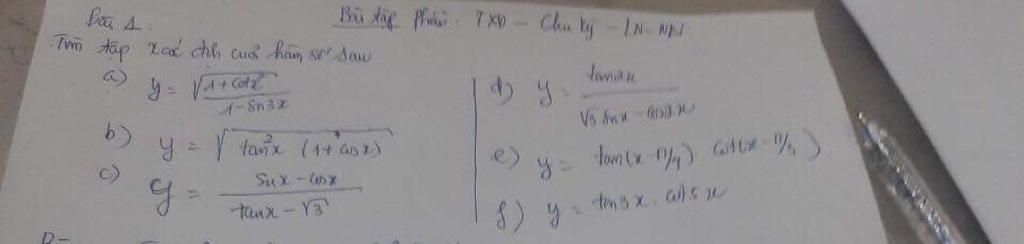 Bài tập phần: TXĐ - Chu kỳ - LN - NN
Bài 1.
Tìm tập xác định của hàm số sau
a) y = √(1+cot²x / 1-sin3x)
b) y = √(tan²x (1+cosx))
c) y = (sinx - cosx) / (tanx - √3)
d) y = tan2x / (√3 sinx - cos2x)
e) y = tan(x - π/4) . cot(x - π/3)
f) y = tan3x . cot5x